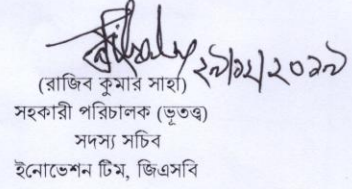 (রাজিব কুমার সাহা)
সহকারী পরিচালক (ভূতত্ত্ব)
সদস্য সচিব
ইনোভেশন টিম, জিএসবি